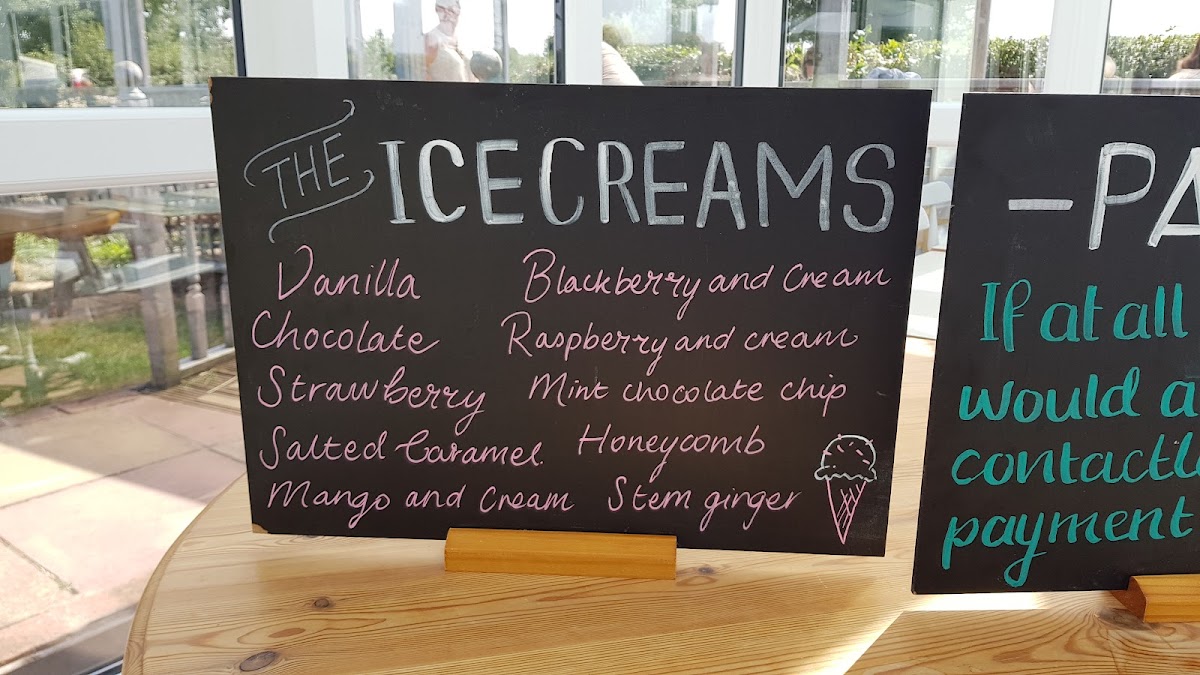 THE ICECREAMS
Vanilla
Chocolate
Strawberry
Salted Caramel
Mango and Cream
Blackberry and Cream
Raspberry and cream
Mint chocolate chip
Honeycomb
Stem ginger
-PA
If at all
would a
contactl
payment